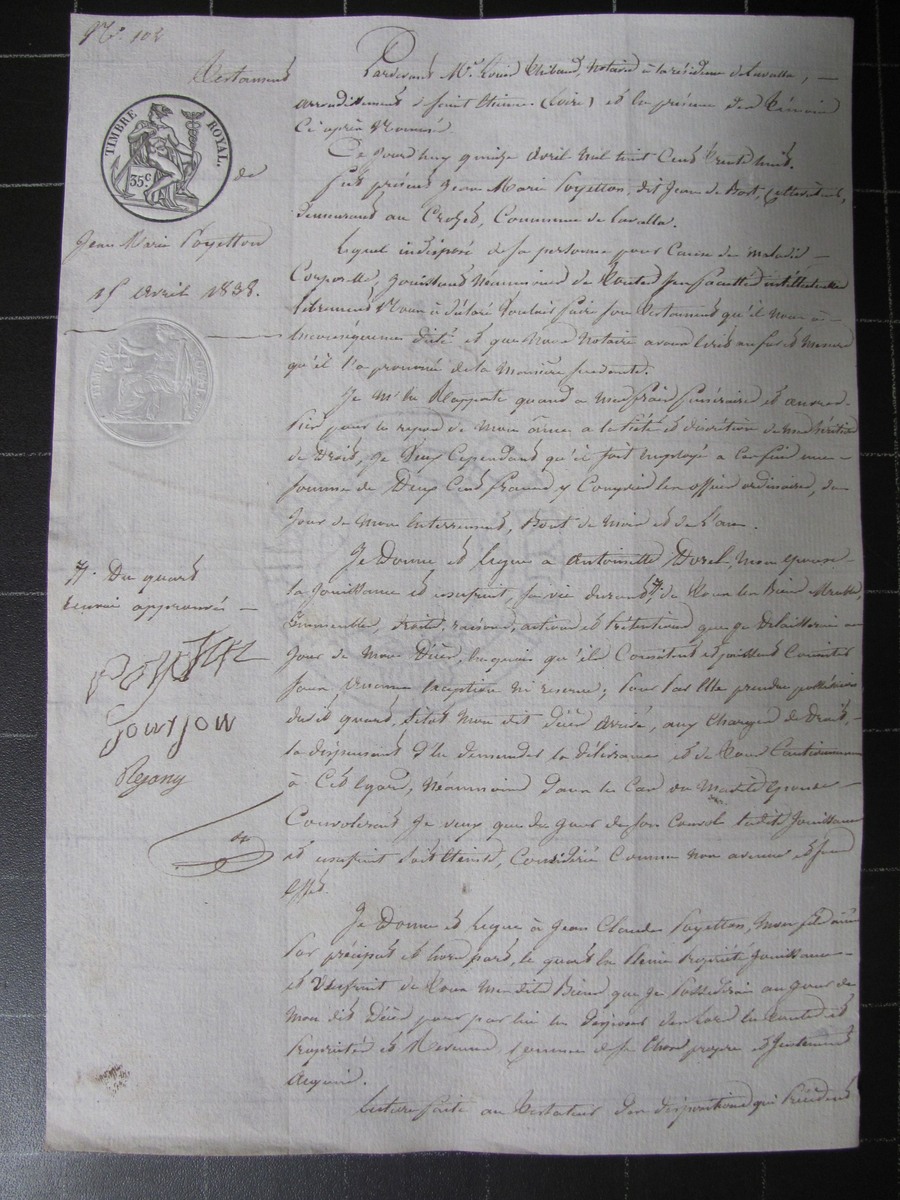 N.° 102
Testament
TIMBRE ROYAL.
35 c
de
Jean Marie Poyetton
15 avril 1838.
Pardevant M.e Louis Thibaud, Notaire à la résidence de Lavalla,
arrondissement de Saint Etienne (Loire) et en présence des témoins
ci après nommés.
Ce jourdhuy quinze avril mil huit cent trente huit.
fut présent Jean Marie Poyetton, dit Jean de Bort, cultivateur,
demeurant au Crozet, Commune de Lavalla.
Lequel indisposé de sa personne pour cause de maladie
Corporelle, jouissant néanmoins de toutes ses facultés intellectuelles
librement nous a déclaré vouloir faire son testament qu'il nous a
en conséquence dicté et que nous Notaire avons écrit au fur et mesure
qu'il l'a prononcé de la manière suivante.
Je m'en rapporte quand a mes frais funéraires et aux
pour le repos de mon âme a la piété et discrétion de mes héritiers
de droit, je veux cependant qu'il soit employé a cet fin une
somme de Deux Cent francs y compris les offices ordinaires, du
jour de mon enterrement, bout de mois et de l'an.
Je Donne et lègue à Antoinette Dorel, mon épouse
la jouissance et usufruit, sa vie durant, de tous les Biens Meubles,
Immeubles, droits, raisons, actions et prétentions que je délaisserai au
jour de mon décès, en quoi qu'ils consistent et puissent consister
sans aucune exception ni réserve; pour par elle prendre possession
dudit quart, sitôt mon dit décès arrivé, aux charges de droit,
la dispensant d'en demander la délivrance et de tout cautionnement
à cet égard, Néanmoins dans le cas ou madite épouse
Convolerait je veux que du jour de son convol ladite jouissance
et usufruit soit éteinte, considérée comme non avenue et sans
effet.
Je Donne et lègue à Jean Claude Poyetton, mon fils aîné
par préciput et hors part, le quart en pleine propriété jouissance
et usufruit de tous mesdits Biens que je posséderai au jour de
mon dit décès pour par lui en disposer dès lors en toute
propriété et comme de sa chose propre et justement
acquise.
Lecture faite au testateur des dispositions qui précèdent
Du quart
renvoi approuvé
Poyetton
Fourjon
Rejany